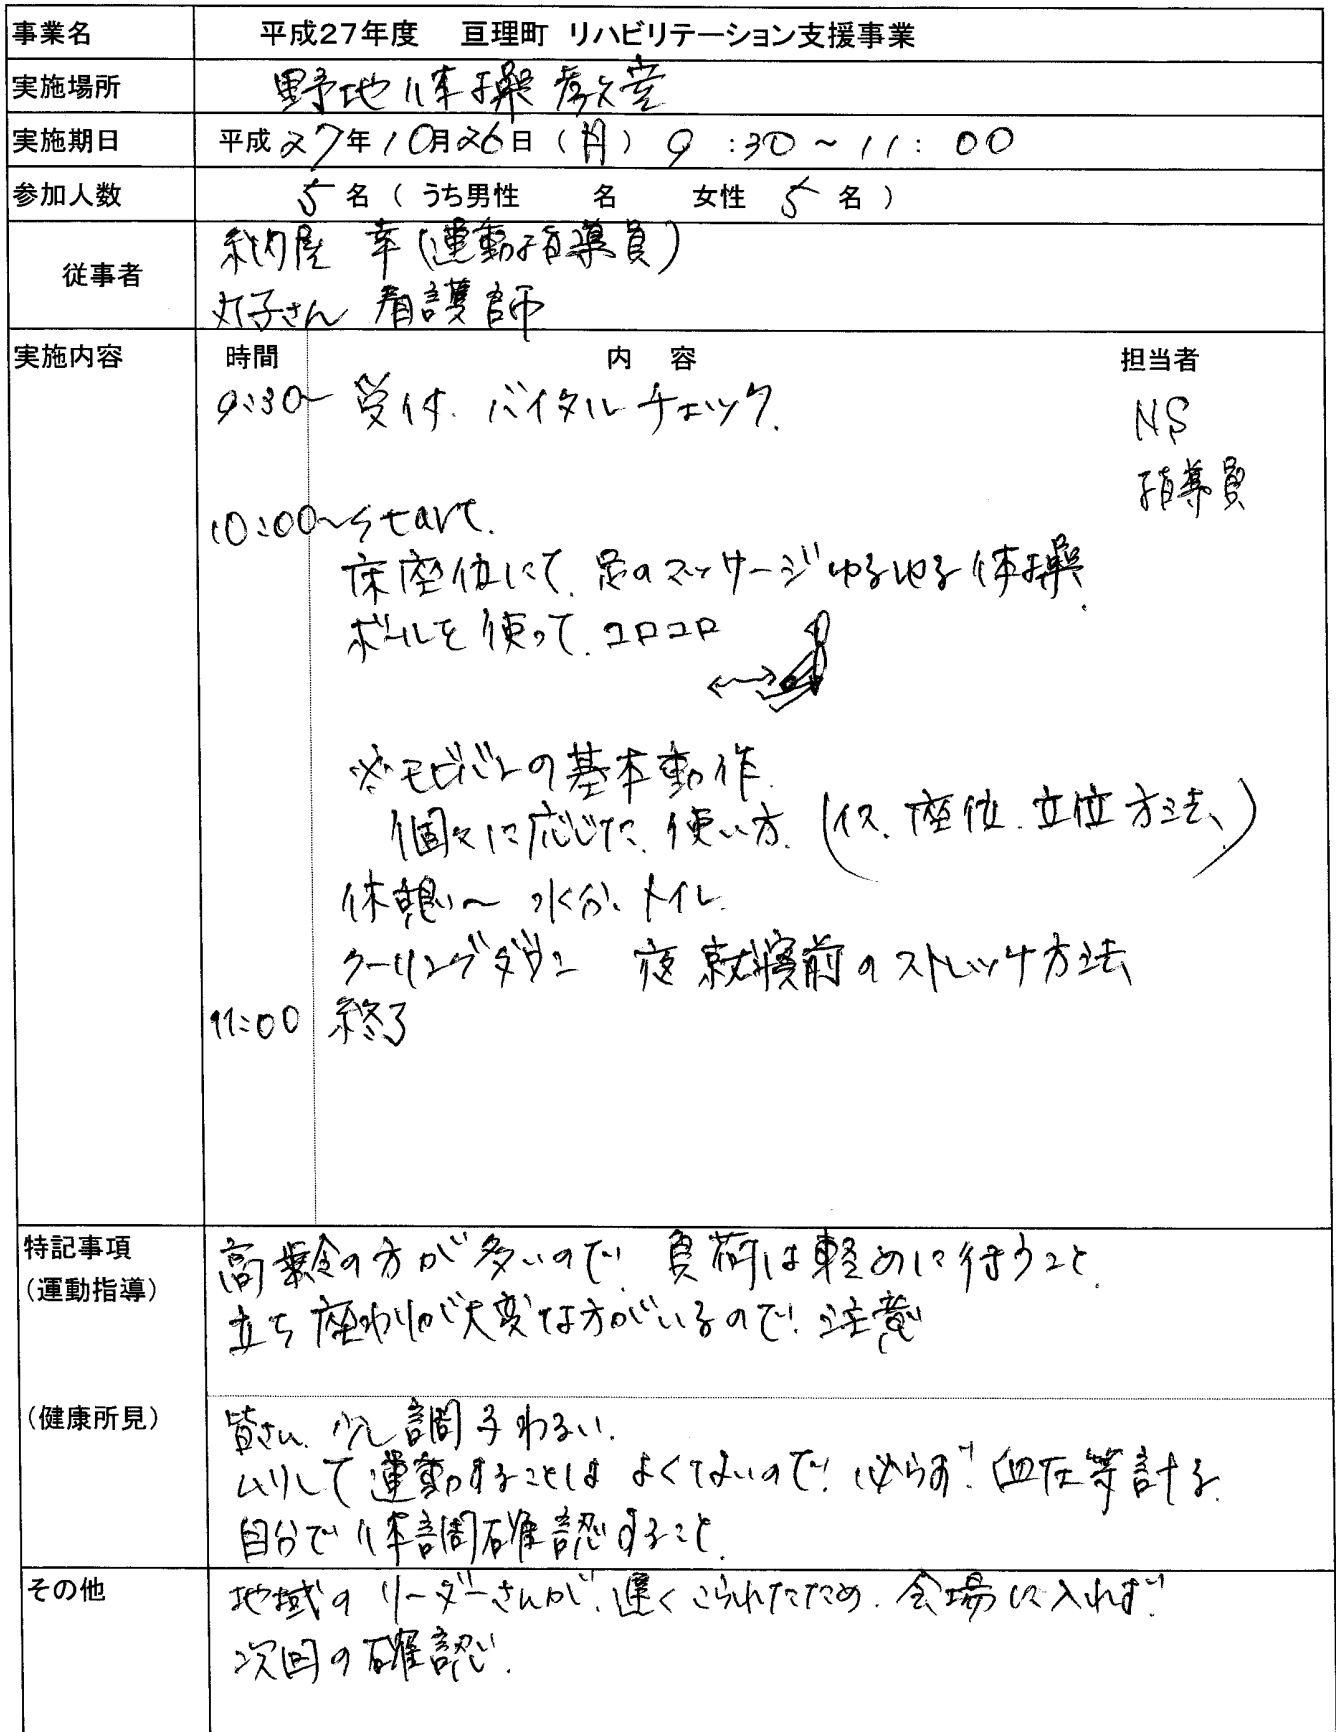 事業名 平成27年度 亘理町 リハビリテーション支援事業
実施場所 野地体操教室
実施期日 平成27年10月26日(月) 9:30~11:00
参加人数 5名(うち男性 名 女性 5名)
従事者 納屋 幸(運動指導員)
子さん 看護師
実施内容 時間 内容 担当者
9:30~ 受付. バイタルチェック. NS
指導員
10:00~ start.
床座位にて. 足のマッサージゆるゆる体操.
ボールを使って. コロコロ
※モビバンの基本動作.
個々に応じた. 使い方. (イス. 座位. 立位方法、)
休憩~ 水分、トイレ.
クーリングダウン 夜就寝前のストレッチ方法
11:00 終了
特記事項
(運動指導)
高齢の方が多いので. 負荷は軽めに行うこと.
立ち座わりが大変な方がいるので. 注意
(健康所見)
皆さん. 少し調子わるい.
ムリして運動することはよくないので. 必らず. 血圧等計る.
自分で体調確認すること.
その他 地域のリーダーさんが. 遅くこられたため. 会場に入れず.
次回の確認.